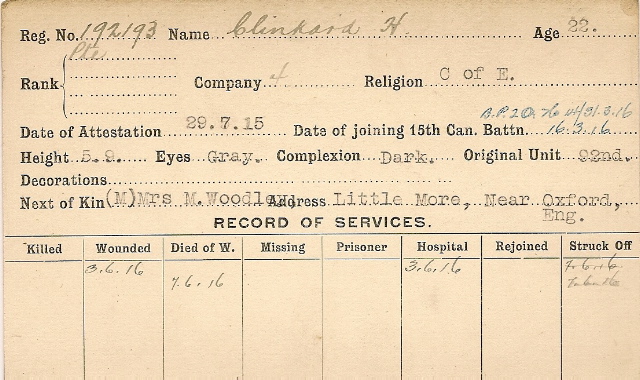 Reg. No. 192193 Name Clinkard H. Age 22.
Pte
Rank Company 4 Religion C of E.
B.P.20. 31.3.16
Date of Attestation 29.7.15 Date of joining 15th Can. Battn. 16.3.16
Height 5.9. Eyes Gray. Complexion Dark. Original Unit 92nd.
Decorations
Next of Kin (M)Mrs M.Woodley, Address Little More, Near Oxford,
Eng.
RECORD OF SERVICES.
Killed Wounded Died of W. Missing Prisoner Hospital Rejoined Struck Off
3.6.16 3.6.16 7.6.16
7.6.16 7.6.16